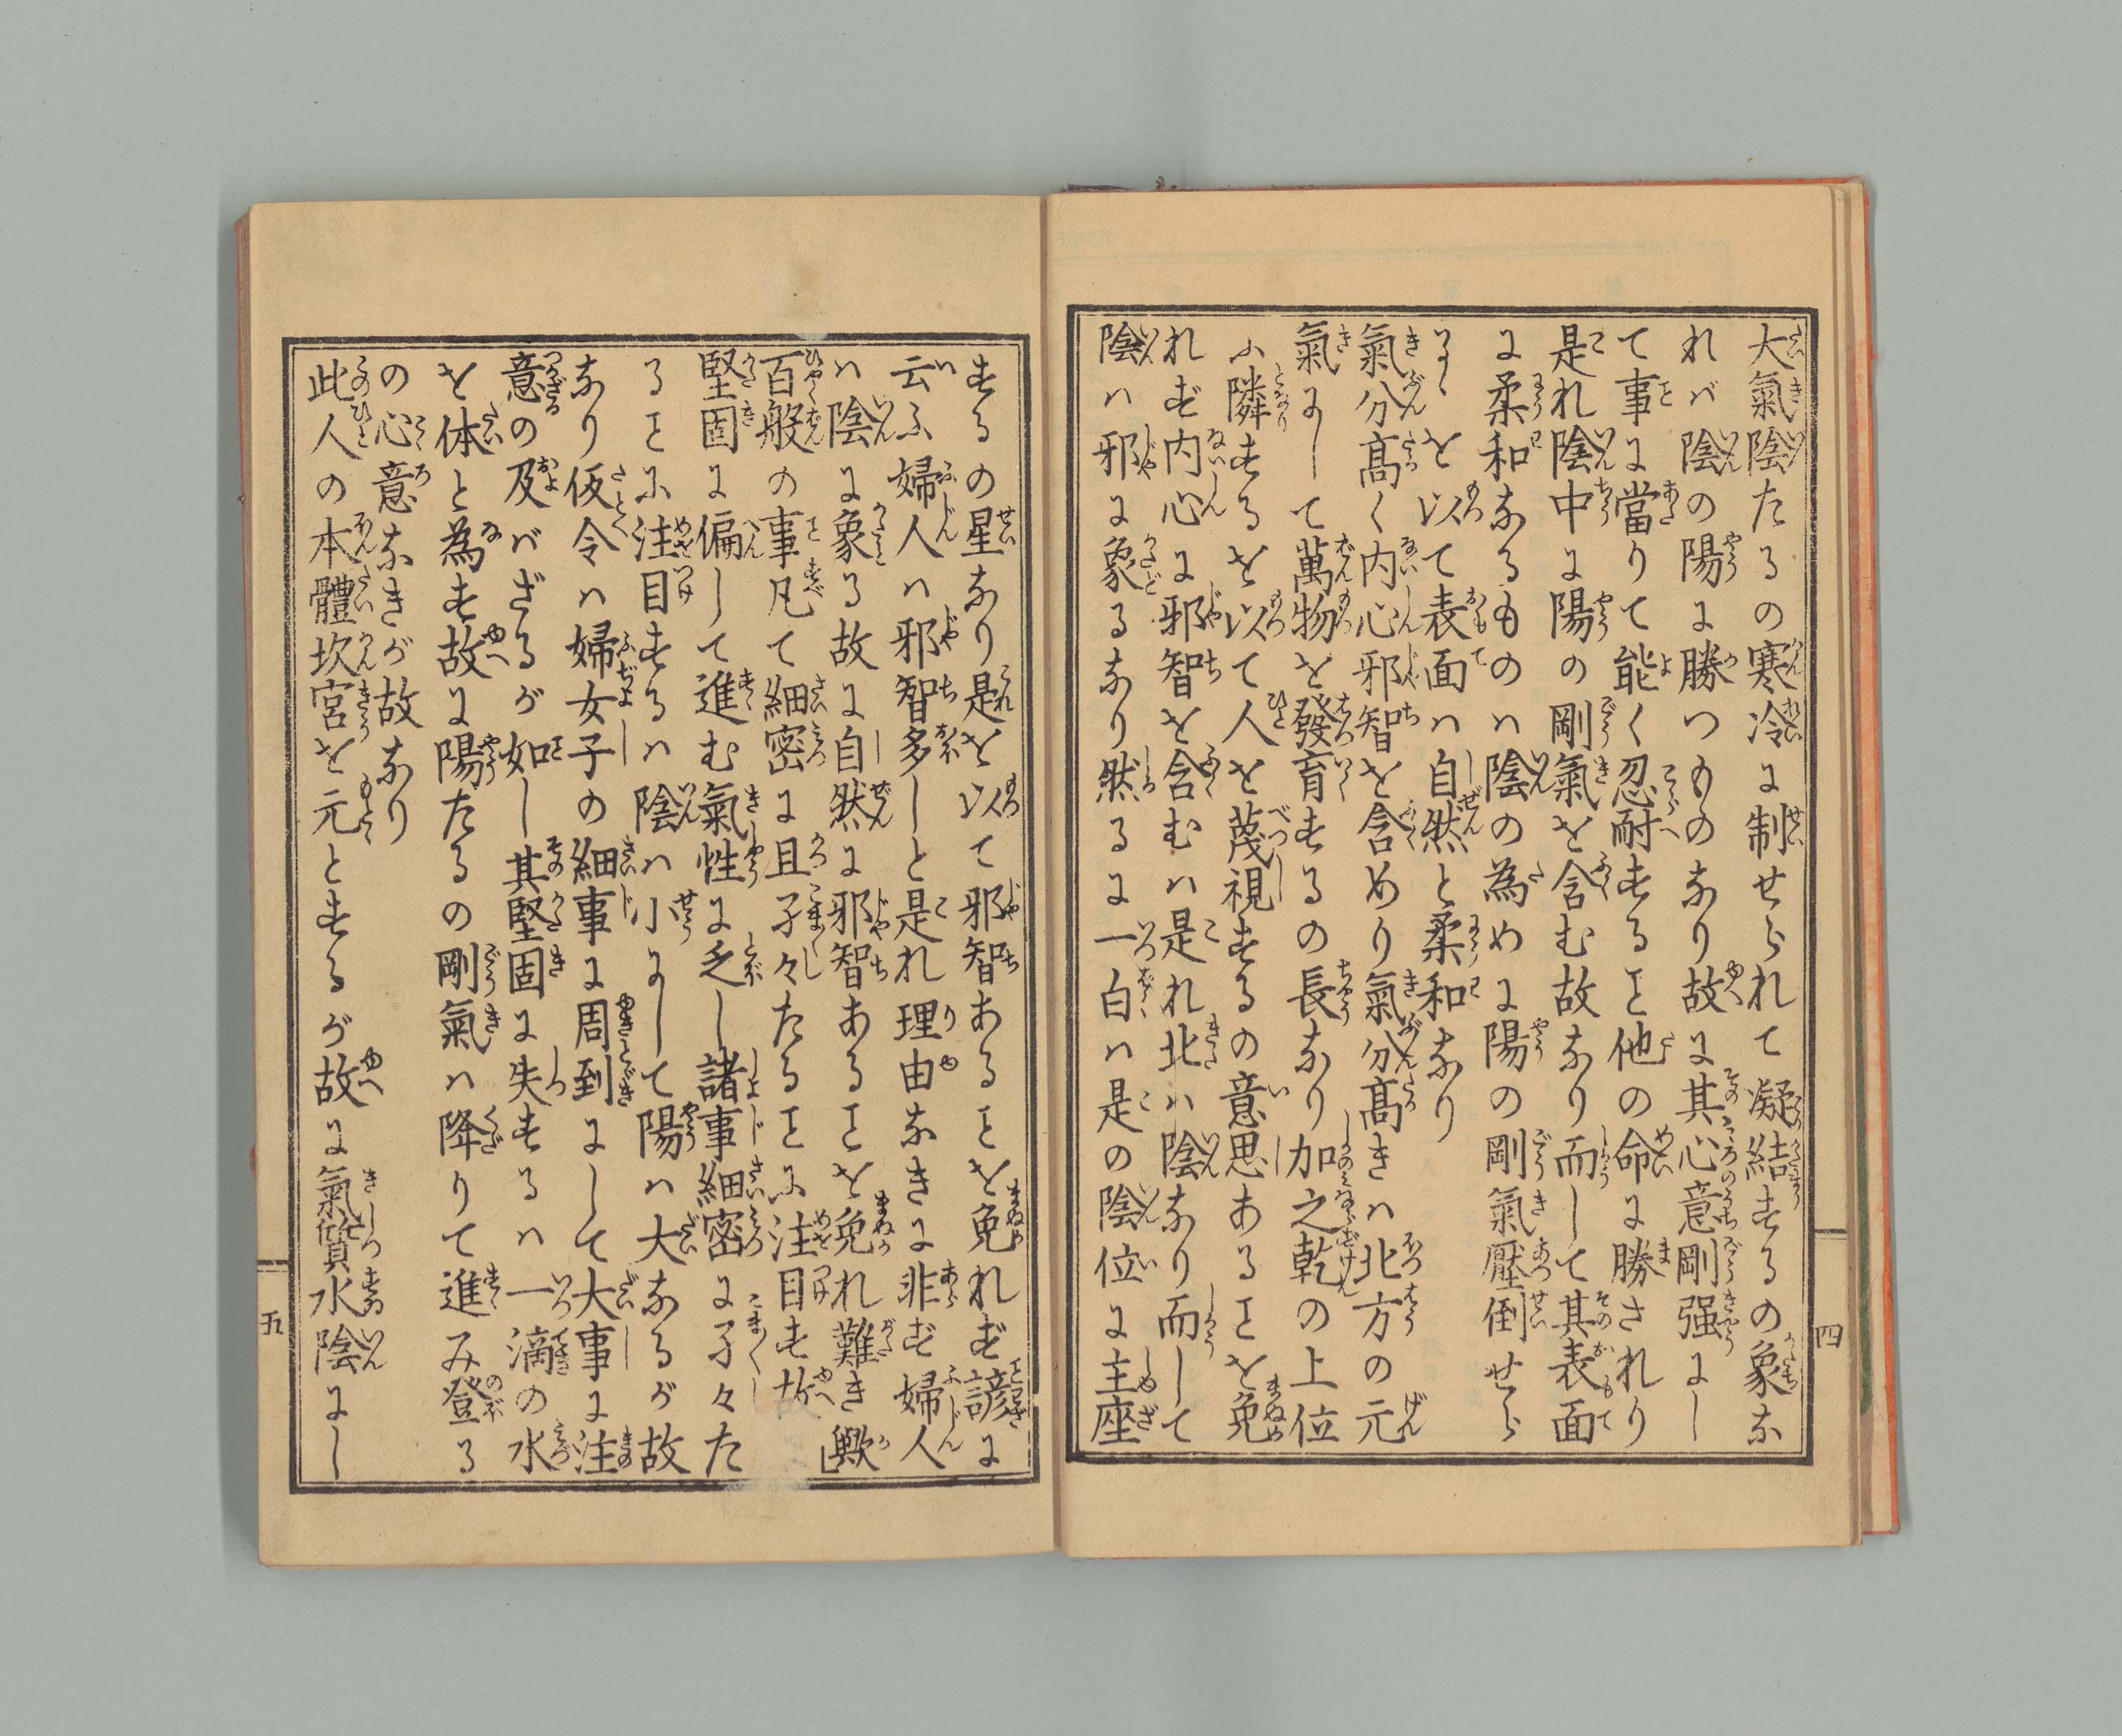 大氣陰たるの寒冷に制せられて凝結するの象な
れバ陰の陽に勝つものなり故に其心意剛强にし
て事に當りて能く忍耐するヿ他の命に勝されり
是れ陰中に陽の剛氣を含む故なり而して其表面
に柔和なるものハ陰の為めに陽の剛氣壓倒せら
るゝを以て表面ハ自然と柔和なり
氣分高く内心邪智を含めり氣分高きハ北方の元
氣にして萬物を發育するの長なり加之乾の上位
に隣するを以て人を蔑視するの意思あるヿを免
れず内心に邪智を含むハ是れ北ハ陰なり而して
陰ハ邪に象るなり然るに一白ハ是の陰位に主座
四
するの星なり是を以て邪智あるヿを免れず諺に
云ふ婦人ハ邪智多しと是れ理由なきに非ず婦人
ハ陰に象る故に自然に邪智あるヿを免れ難き歟」
百般の事凡て細密に且孑々たるヿに注目す故に
堅固に偏して進む氣性に乏し諸事細密に孑々た
るヿに注目するハ陰ハ小にして陽ハ大なるが故
なり仮令ハ婦女子の細事に周到にして大事に注
意の及バざるが如し其堅固に失するハ一滴の水
を体と為す故に陽たるの剛氣ハ降りて進み登る
の心意なきが故なり
此人の本體坎宮を元とするが故に氣質水陰にし
五